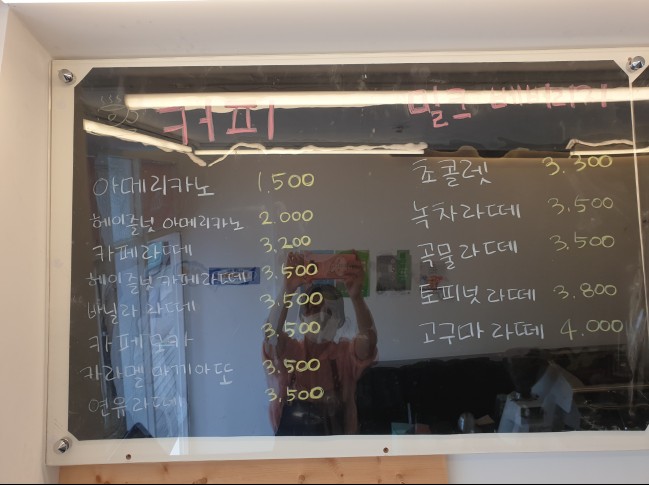 커피
아메리카노 1.500
헤이즐넛 아메리카노 2.000
카페라떼 3.200
헤이즐넛 카페라떼 3.500
바닐라 라떼 3.500
카페모카 3.500
카라멜 마끼아또 3.500
연유라떼 3.500
밀크 베버리지
초콜렛 3.300
녹차라떼 3.500
곡물라떼 3.500
토피넛 라떼 3.800
고구마 라떼 4.000